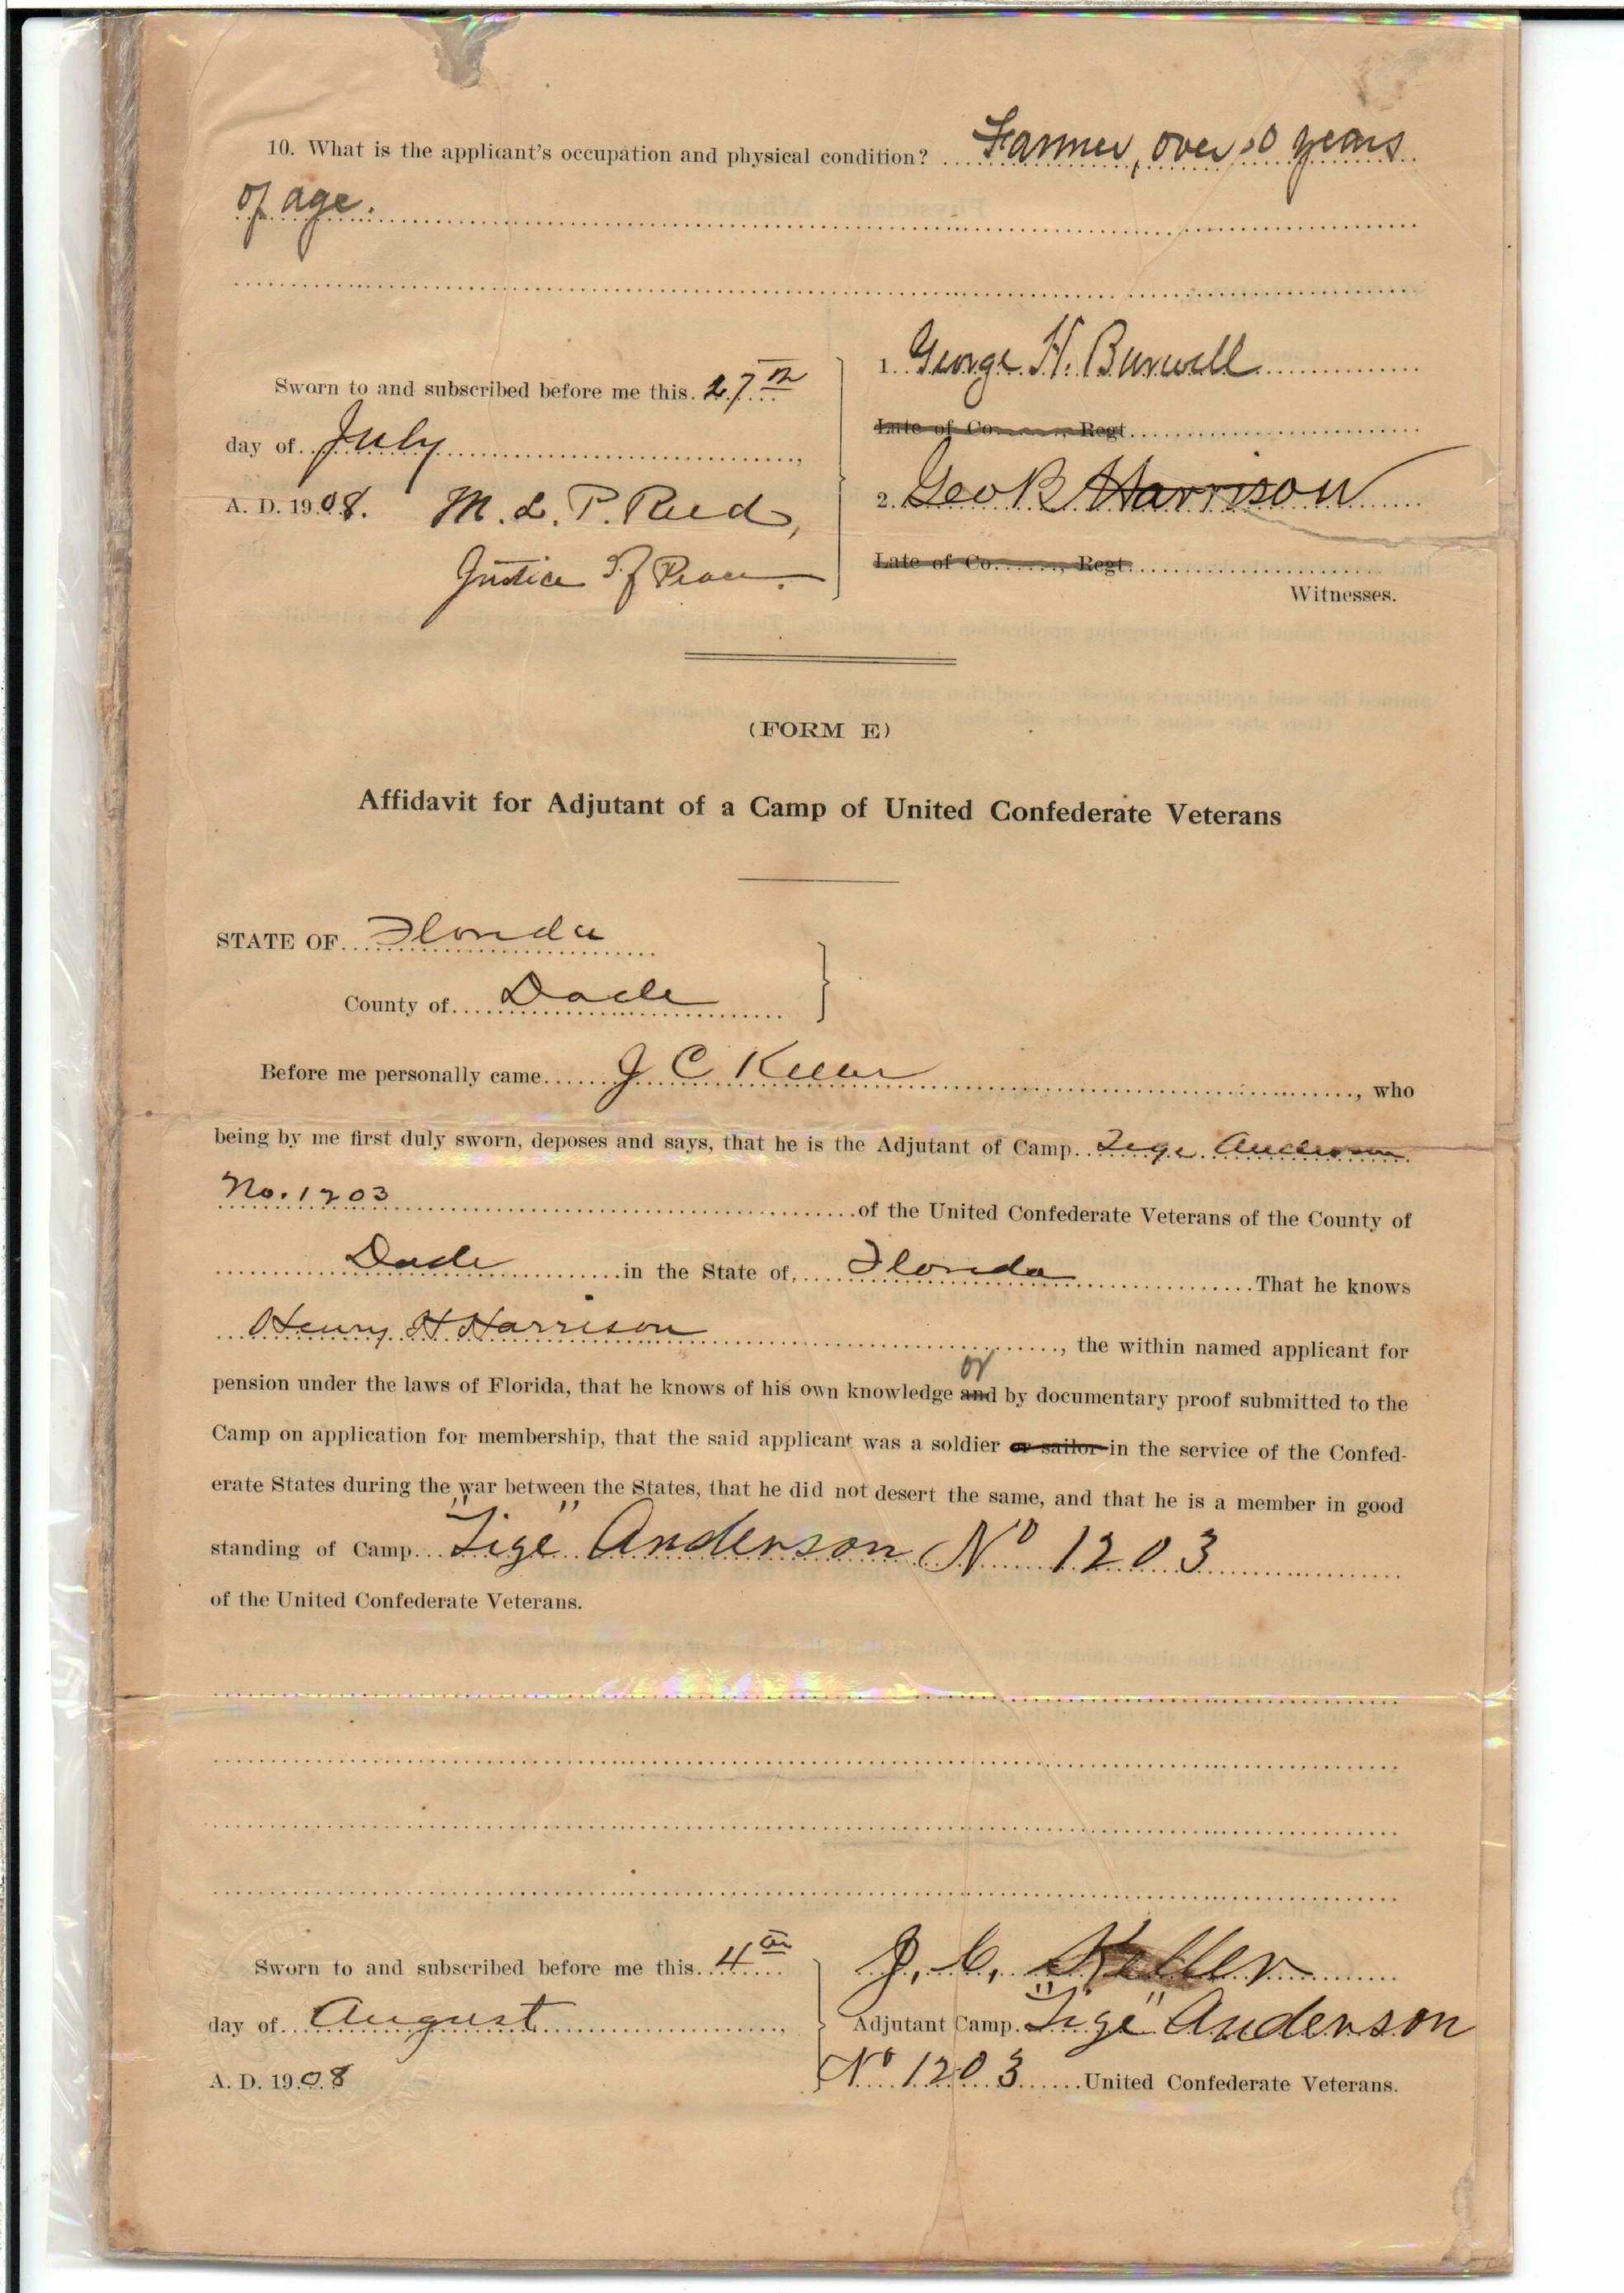 10. What is the applicant's occupation and physical condition? Farmer, over 50 years
of age.
Sworn to and subscribed before me this 27th
day of July,
A. D. 1908. M. L. P. Reed,
Justice of Peace.
1. George H. Burwell
Late of Co. , Regt.
2. Geo R Harrison
Late of Co. , Regt.
Witnesses.
(FORM E)
Affidavit for Adjutant of a Camp of United Confederate Veterans
STATE OF Florida
County of Dade
Before me personally came J C Keller, who
being by me first duly sworn, deposes and says, that he is the Adjutant of Camp Tige Anderson
No. 1203 of the United Confederate Veterans of the County of
Dade in the State of Florida That he knows
Henry H Harrison, the within named applicant for
or
pension under the laws of Florida, that he knows of his own knowledge and by documentary proof submitted to the
Camp on application for membership, that the said applicant was a soldier or sailor in the service of the Confed-
erate States during the war between the States, that he did not desert the same, and that he is a member in good
standing of Camp "Tige" Anderson No 1203
of the United Confederate Veterans.
Sworn to and subscribed before me this 4th
day of August,
A. D. 1908
J. C. Keller
Adjutant Camp "Tige" Anderson
No 1203 United Confederate Veterans.